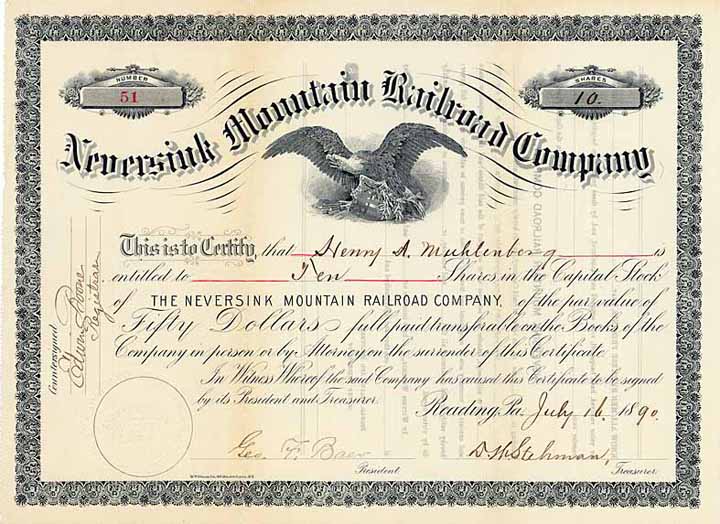 NUMBER
51
SHARES
10.
Neversink Mountain Railroad Company
This is to Certify, that Henry A. Muhlenberg is
entitled to Ten Shares in the Capital Stock
of THE NEVERSINK MOUNTAIN RAILROAD COMPANY, of the par value of
Fifty Dollars full paid transferable on the Books of the
Company in person or by Attorney on the surrender of this Certificate
In Witness Whereof the said Company has caused this Certificate to be signed
by its President and Treasurer. Reading, Pa. July 16 1890.
Geo. F. Baer
President.
D H Stehman,
Treasurer.
Countersigned
Registrar